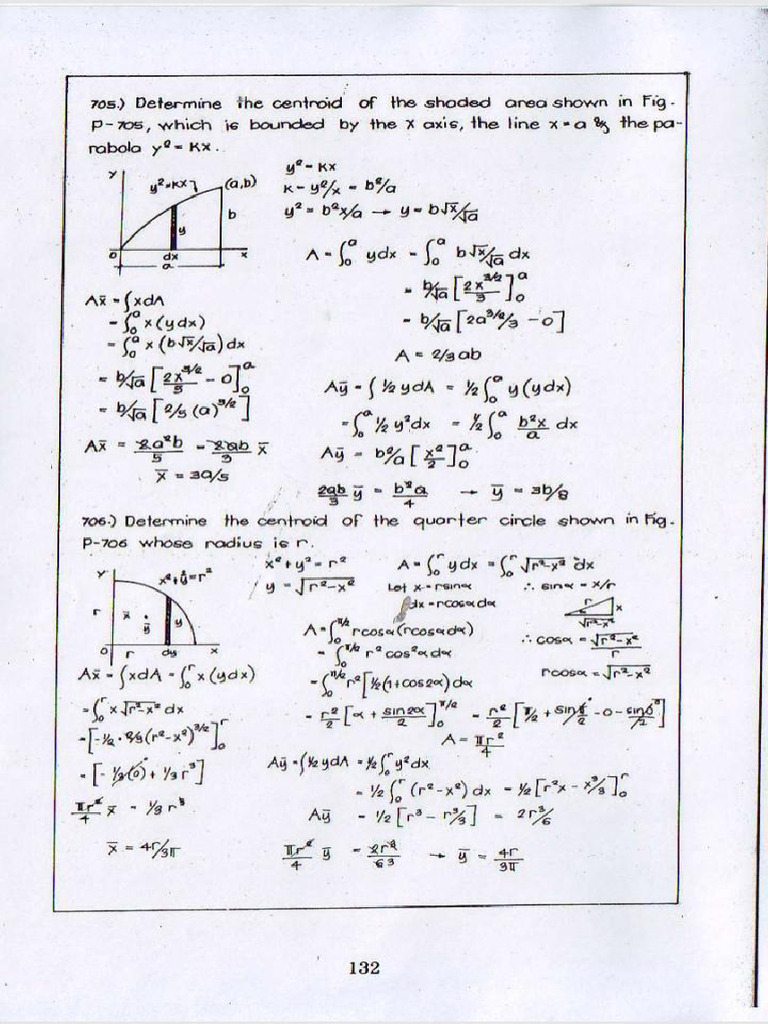 705.) Determine the centroid of the shaded area shown in Fig.
P-705, which is bounded by the X axis, the line x = a & the pa-
rabola y² = Kx.
y
y²=KX
(a,b)
b
y
O
dx
x
a
y² = Kx
K = y²/x = b²/a
y² = b²x/a → y = b√x/√a
A = ∫₀ᵃ ydx = ∫₀ᵃ b√x/√a dx
= b/√a [2x^3/2 / 3]₀ᵃ
= b/√a [2a^3/2/3 - 0]
A = 2/3 ab
Ax̄ = ∫xdA
= ∫₀ᵃ x(ydx)
= ∫₀ᵃ x(b√x/√a)dx
= b/√a [2x^5/2 / 5 - 0]₀ᵃ
= b/√a [2/5 (a)^5/2]
Ax̄ = 2a²b/5 = 2ab/3 x̄
x̄ = 3a/5
Aȳ = ∫ ½ ydA = ½ ∫₀ᵃ y(ydx)
= ∫₀ᵃ ½ y²dx = ½ ∫₀ᵃ b²x/a dx
Aȳ = b²/a [x²/2]₀ᵃ
2ab/3 ȳ = b²a/4 → ȳ = 3b/8
706.) Determine the centroid of the quarter circle shown in Fig.
P-706 whose radius is r.
y
x²+y²=r²
r
x̄
ȳ
y
O
r
dy
x
x²+y² = r²
y = √r²-x²
A = ∫₀ʳ ydx = ∫₀ʳ √r²-x² dx
Let x = rsinα
∴ sinα = x/r
dx = rcosαdα
r
x
√r²-x²
A = ∫₀^π/2 rcosα(rcosαdα)
∴ cosα = √r²-x² / r
= ∫₀^π/2 r²cos²αdα
rcosα = √r²-x²
= ∫₀^π/2 r²[½(1+cos2α)dα
= r²/2 [α + sin2α/2]₀^π/2 = r²/2 [π/2 + sin0/2 - 0 - sin0/2]
A = πr²/4
Ax̄ = ∫xdA = ∫₀ʳ x(ydx)
= ∫₀ʳ x√r²-x² dx
= [-½ · 2/3(r²-x²)^3/2]₀ʳ
= [-⅓(0) + ⅓r³]
πr²/4 x̄ = ⅓ r³
x̄ = 4r/3π
Aȳ = ∫½ydA = ½∫₀ʳ y²dx
= ½ ∫₀ʳ (r²-x²) dx = ½ [r²x - x³/3]₀ʳ
Aȳ = ½ [r³ - r³/3] = 2r³/6
πr²/4 ȳ = 2r³/63 → ȳ = 4r/3π
132